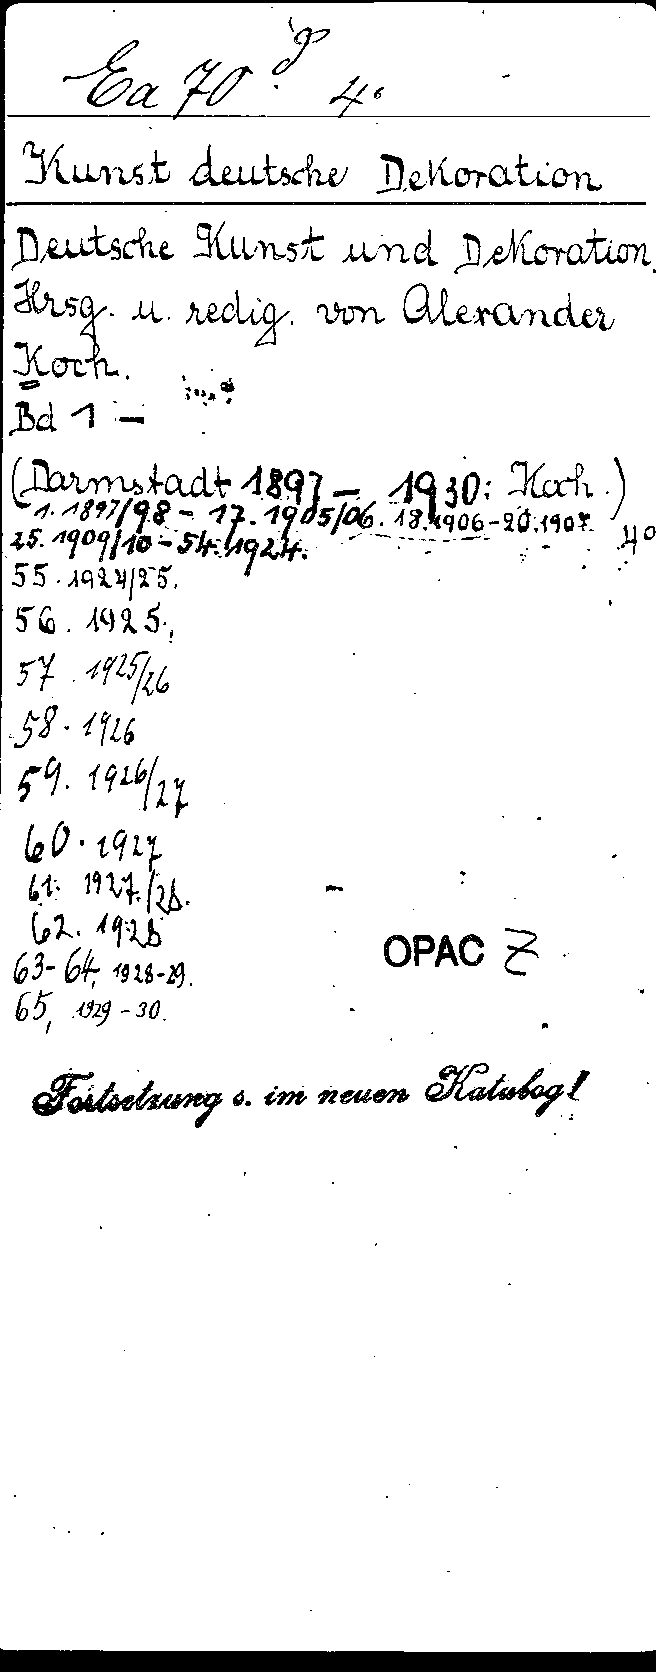 Ea 70 4°
Kunst deutsche Dekoration
Deutsche Kunst und Dekoration.
Hrsg. u. redig. von Alexander
Koch.
Bd 1 –
(Darmstadt 1897 – 1930: Koch.)
1. 1897/98 – 17. 1905/06. 18. 1906 – 20. 1907. 4°
25. 1909/10 – 54. 1924.
55. 1924/25.
56. 1925.
57. 1925/26
58. 1926
59. 1926/27
60. 1927
61. 1927/28.
62. 1928
OPAC Z
63-64, 1928-29.
65, 1929-30.
Fortsetzung s. im neuen Katalog!